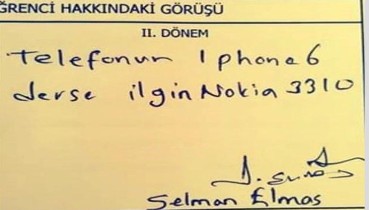 ĞRENCİ HAKKINDAKİ GÖRÜŞÜ
II. DÖNEM
Telefonun Iphone 6
derse ilgin Nokia 3310
Selman Elmas